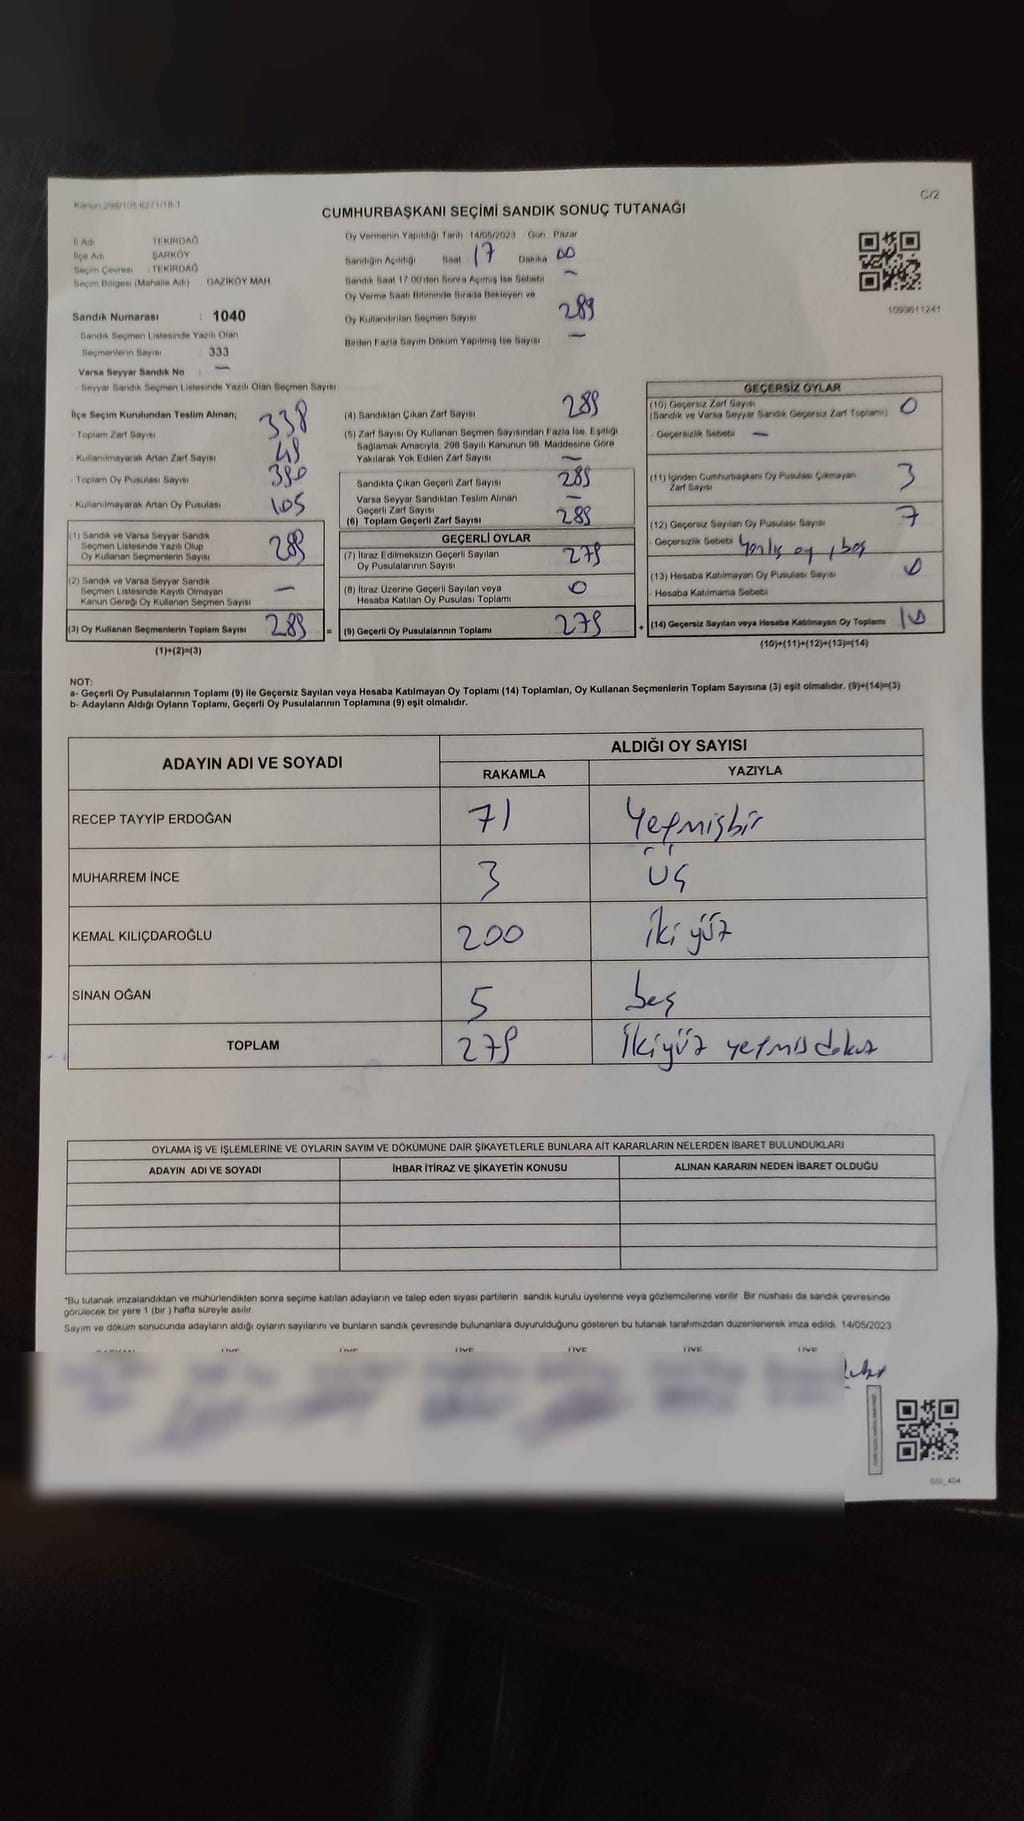 Kanun:298/105.6271/18.1
C/2
CUMHURBAŞKANI SEÇİMİ SANDIK SONUÇ TUTANAĞI
İl Adı TEKİRDAĞ
İlçe Adı ŞARKÖY
Seçim Çevresi : TEKİRDAĞ
Seçim Bölgesi (Mahalle Adı) GAZİKÖY MAH.
Sandık Numarası : 1040
Sandık Seçmen Listesinde Yazılı Olan
Seçmenlerin Sayısı 333
Varsa Seyyar Sandık No : —
Seyyar Sandık Seçmen Listesinde Yazılı Olan Seçmen Sayısı
Oy Vermenin Yapıldığı Tarih 14/05/2023 Gün Pazar
Sandığın Açıldığı Saat : 17 Dakika 00
Sandık Saat 17:00'den Sonra Açılmış İse Sebebi —
Oy Verme Saati Bitiminde Sırada Bekleyen ve
Oy Kullandırılan Seçmen Sayısı 289
Birden Fazla Sayım Döküm Yapılmış İse Sayısı —
1093611241
İlçe Seçim Kurulundan Teslim Alınan;
Toplam Zarf Sayısı 338
Kullanılmayarak Artan Zarf Sayısı 49
Toplam Oy Pusulası Sayısı 390
Kullanılmayarak Artan Oy Pusulası 105
(1) Sandık ve Varsa Seyyar Sandık
Seçmen Listesinde Yazılı Olup
Oy Kullanan Seçmenlerin Sayısı 289
(2) Sandık ve Varsa Seyyar Sandık
Seçmen Listesinde Kayıtlı Olmayan
Kanun Gereği Oy Kullanan Seçmen Sayısı —
(3) Oy Kullanan Seçmenlerin Toplam Sayısı 289 =
(1)+(2)=(3)
(4) Sandıktan Çıkan Zarf Sayısı 289
(5) Zarf Sayısı Oy Kullanan Seçmen Sayısından Fazla İse, Eşitliği
Sağlamak Amacıyla, 298 Sayılı Kanunun 98. Maddesine Göre
Yakılarak Yok Edilen Zarf Sayısı —
Sandıkta Çıkan Geçerli Zarf Sayısı 289
Varsa Seyyar Sandıktan Teslim Alınan
Geçerli Zarf Sayısı —
(6) Toplam Geçerli Zarf Sayısı 289
GEÇERLİ OYLAR
(7) İtiraz Edilmeksizin Geçerli Sayılan
Oy Pusulalarının Sayısı 279
(8) İtiraz Üzerine Geçerli Sayılan veya
Hesaba Katılan Oy Pusulası Toplamı 0
(9) Geçerli Oy Pusulalarının Toplamı 279 +
GEÇERSİZ OYLAR
(10) Geçersiz Zarf Sayısı
(Sandık ve Varsa Seyyar Sandık Geçersiz Zarf Toplamı) 0
- Geçersizlik Sebebi —
(11) İçinden Cumhurbaşkanı Oy Pusulası Çıkmayan
Zarf Sayısı 3
(12) Geçersiz Sayılan Oy Pusulası Sayısı 7
- Geçersizlik Sebebi Yanlış oy, boş
(13) Hesaba Katılmayan Oy Pusulası Sayısı 0
- Hesaba Katılmama Sebebi
(14) Geçersiz Sayılan veya Hesaba Katılmayan Oy Toplamı 10
(10)+(11)+(12)+(13)=(14)
NOT:
a- Geçerli Oy Pusulalarının Toplamı (9) ile Geçersiz Sayılan veya Hesaba Katılmayan Oy Toplamı (14) Toplamları, Oy Kullanan Seçmenlerin Toplam Sayısına (3) eşit olmalıdır. (9)+(14)=(3)
b- Adayların Aldığı Oyların Toplamı, Geçerli Oy Pusulalarının Toplamına (9) eşit olmalıdır.
ADAYIN ADI VE SOYADI ALDIĞI OY SAYISI
RAKAMLA YAZIYLA
RECEP TAYYİP ERDOĞAN 71 Yetmişbir
MUHARREM İNCE 3 üç
KEMAL KILIÇDAROĞLU 200 iki yüz
SİNAN OĞAN 5 beş
TOPLAM 279 ikiyüz yetmiş dokuz
OYLAMA İŞ VE İŞLEMLERİNE VE OYLARIN SAYIM VE DÖKÜMÜNE DAİR ŞİKAYETLERLE BUNLARA AİT KARARLARIN NELERDEN İBARET BULUNDUKLARI
ADAYIN ADI VE SOYADI İHBAR İTİRAZ VE ŞİKAYETİN KONUSU ALINAN KARARIN NEDEN İBARET OLDUĞU
*Bu tutanak imzalandıktan ve mühürlendikten sonra seçime katılan adayların ve talep eden siyasi partilerin sandık kurulu üyelerine veya gözlemcilerine verilir. Bir nüshası da sandık çevresinde
görülecek bir yere 1 (bir ) hafta süreyle asılır.
Sayım ve döküm sonucunda adayların aldığı oyların sayılarını ve bunların sandık çevresinde bulunanlara duyurulduğunu gösteren bu tutanak tarafımızdan düzenlenerek imza edildi. 14/05/2023